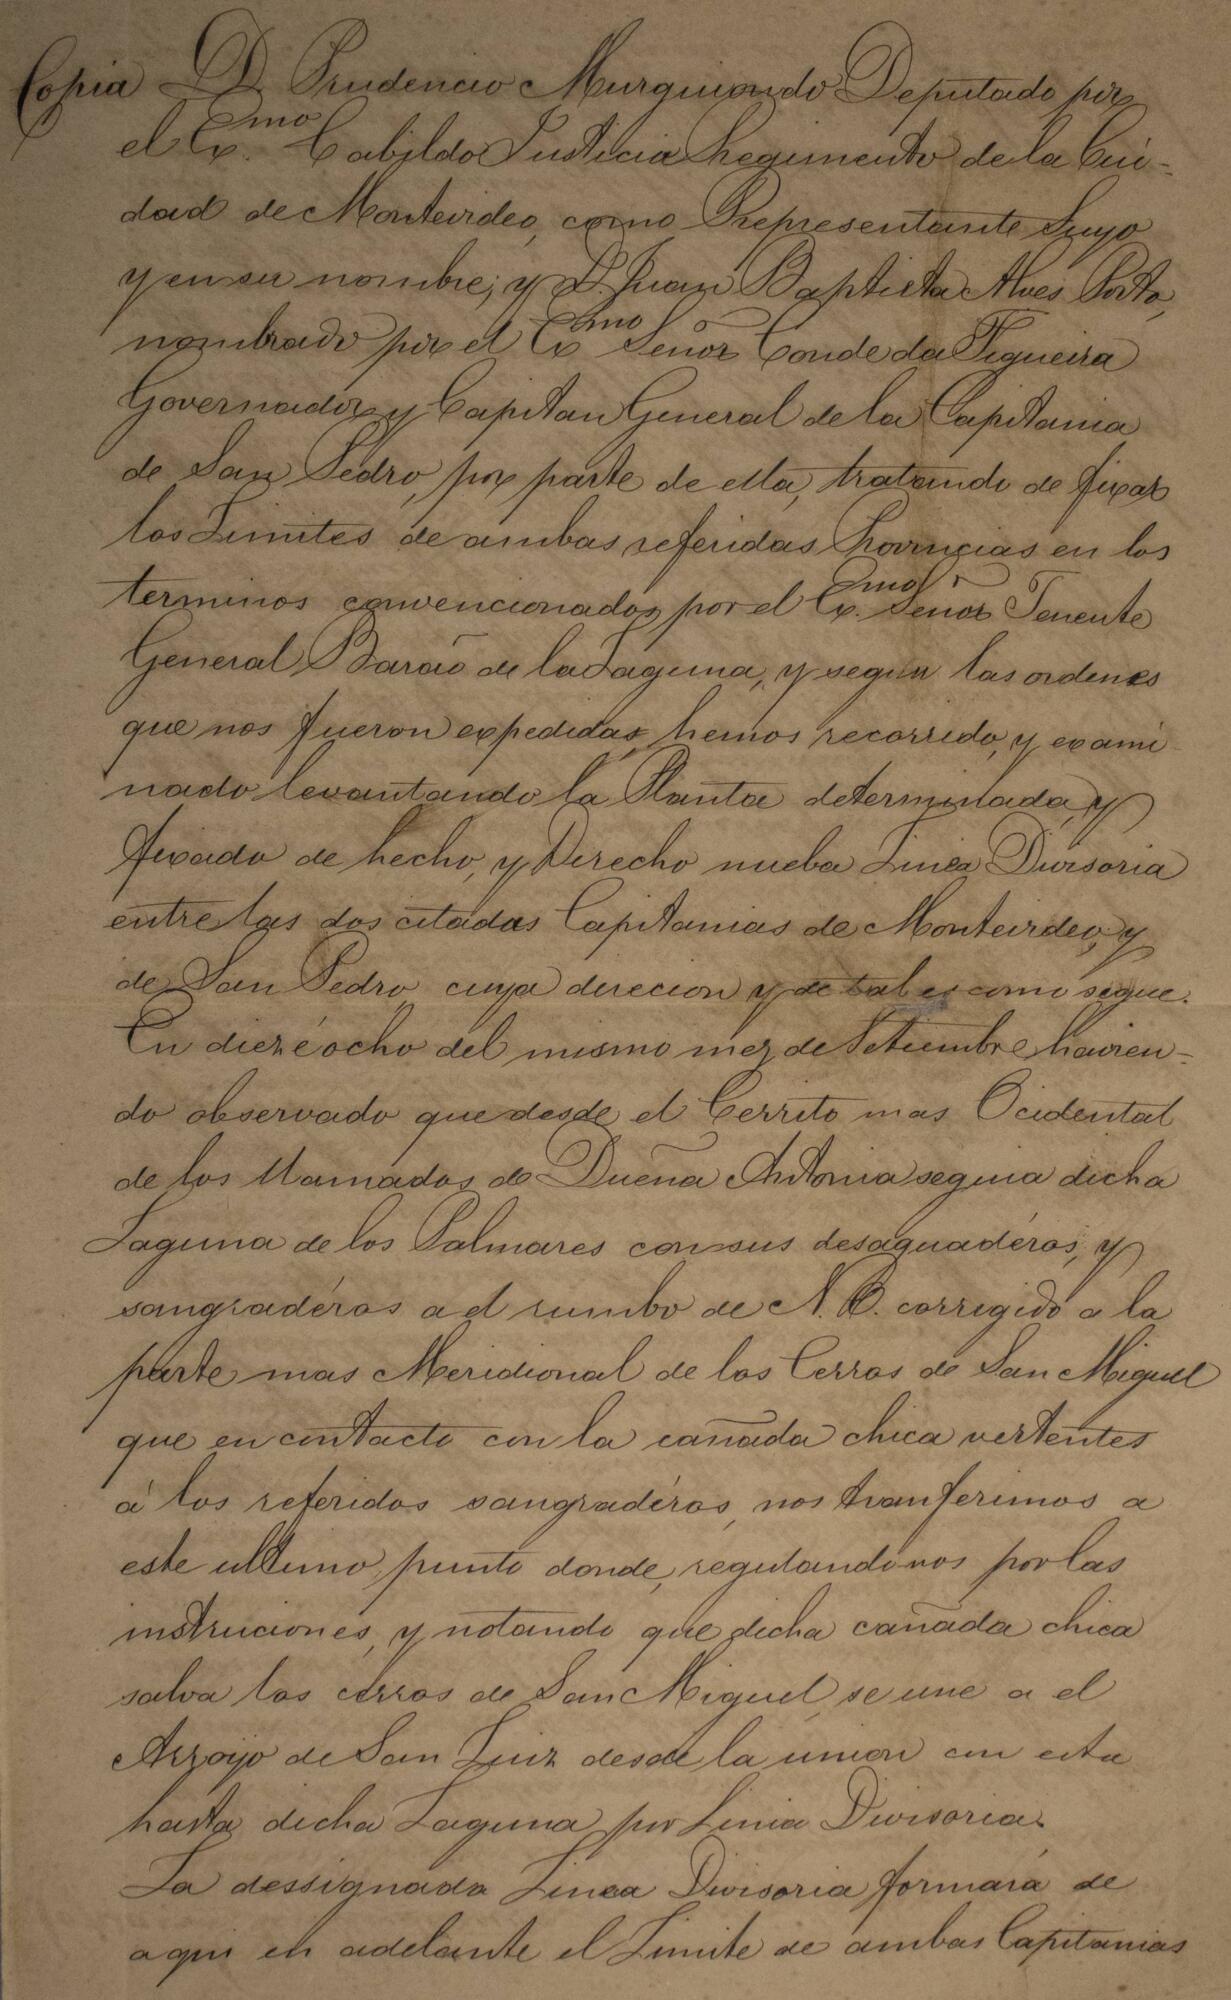 Copia D. Prudencio Murguiondo Deputado por
el Exmo. Cabildo Justicia Regimento de la Ciu-
dad de Montevideo, como Representante Suyo
y en su nombre; y D. Juan Baptista Alves Porto,
nombrado por el Exmo Señor Conde da Figueira
Governador y Capitan General de la Capitania
de San Pedro, por parte de ella, tratando de fixar
los Limites de ambas referidas Provincias en los
terminos convencionados por el Exmo. Señor Tenente
General Barão de la Laguna, y segun las ordenes
que nos fueron expedidas, hemos recorrido, y exami
nado levantando la Planta determinada, y
fixado de hecho, y Derecho nueba Linea Divisoria
entre las dos citadas Capitanias de Montevideo, y
de San Pedro, cuya direcion y detal es como segue.
En diez é ocho del mismo mez de Setiembre havien-
do observado que desde el Cerrito mas Ocidental
de los llamados de Dueña Antonia seguia dicha
Laguna de los Palmares con sus desaguadéros, y
sangradéros a el rumbo de N.E. corregido a la
parte mas Meridional de los Cerros de San Miguel
que en contacto con la cañada chica vertentes
á los referidos sangradéros, nos tranferimos a
este ultimo punto donde, regulandonos por las
instruciones, y notando que dicha cañada chica
salva los cérros de San Miguel, se une a el
Arroyo de San Luiz desde la union con esta
hasta dicha Laguna por Linia Divisoria.
La dessignada Linea Divisoria formará de
aqui en adelante el Limite de ambas Capitanias